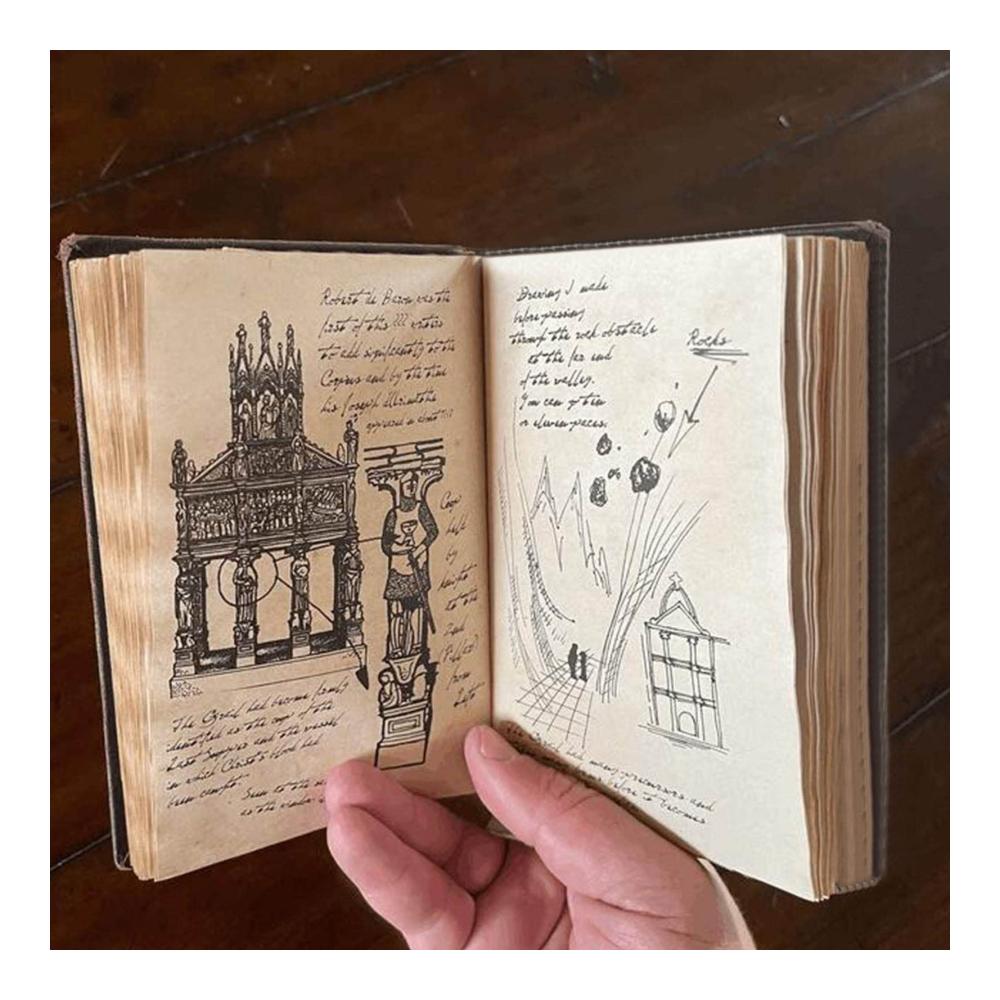 Robert de Baron was the
first of this ??? writers
to add significantly to the
Corpus and by the time
his Joseph
appeared in about
Cup
held
by
knight
to the
2nd
from
Left
The Grail had become firmly
identified as the cup of the
Last Supper and the vessel
in which Christ's blood had
been caught.
Drawing I made
before passing
through the rock obstacle
at the far end
of the valley.
You can go ten
or eleven paces.
Rocks
The Grail had many precursors and
before it becomes